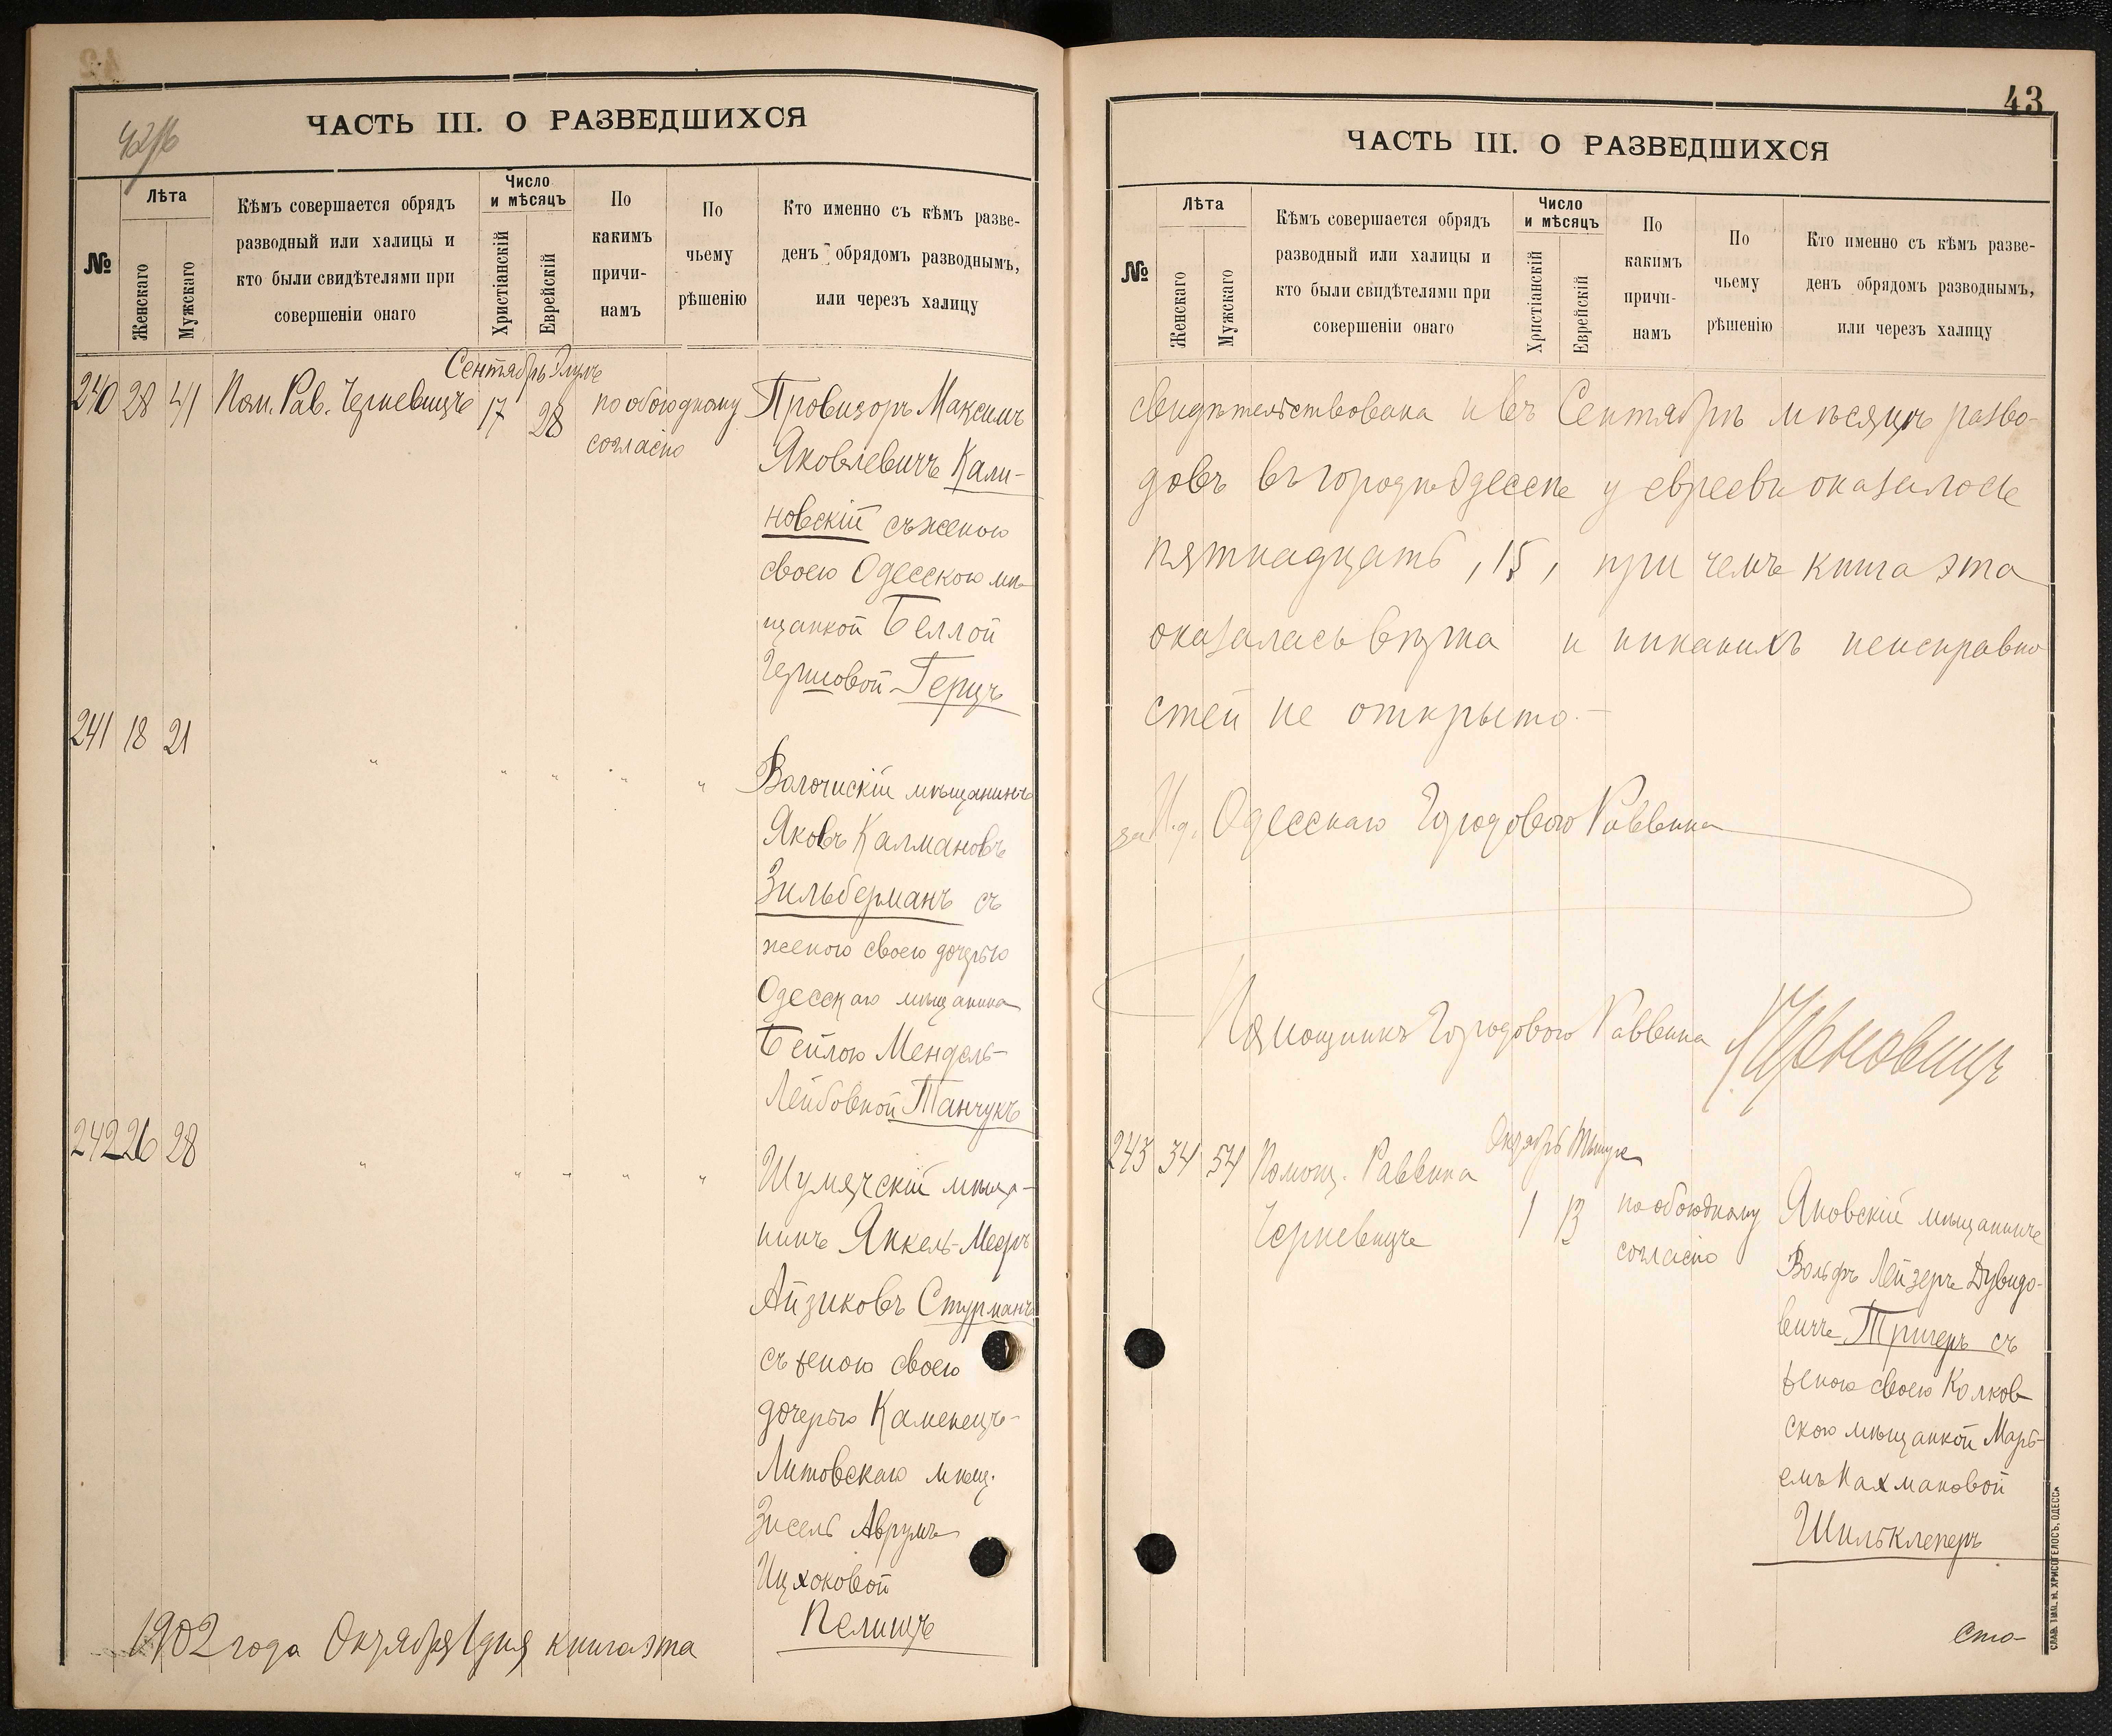 42
42/б
ЧАСТЬ III. О РАЗВЕДШИХСЯ
№
Лѣта
Женскаго
Мужскаго
Кѣмъ совершается обрядъ
разводный или халицы и
кто были свидѣтелями при
совершеніи онаго
Число
и мѣсяцъ
Христіанскій
Еврейскій
По
какимъ
причи-
намъ
По
чьему
рѣшенію
Кто именно съ кѣмъ разве-
денъ обрядомъ разводнымъ,
или черезъ халицу
Сентябрь Элулъ
240 28 41 Пом. Рав. Черневицъ 17 28 по обоюдному
согласію
Провизоръ Максимъ
Яковлевичъ Кали-
новскій съ женою
своею Одесскою мѣ-
щанкой Беллой
Гершовой Герцъ
241 18 21 " " " " "
Волочискій мѣщанинъ
Яковъ Калмановъ
Зильберманъ съ
женою своею дочерью
Одесскаго мѣщанина
Бейлою Мендель-
Лейбовной Танчукъ
242 26 28 " " " " "
Шумячскій мѣща-
нинъ Янкель-Мееръ
Айзиковъ Стурманъ
съ женою своею
дочерью Каменецъ-
Литовскаго мѣщ.
Зисель Аврумъ
Ицхоковой
Пелицъ
1902 года Октября 1 дня книга эта
43
ЧАСТЬ III. О РАЗВЕДШИХСЯ
№
Лѣта
Женскаго
Мужскаго
Кѣмъ совершается обрядъ
разводный или халицы и
кто были свидѣтелями при
совершеніи онаго
Число
и мѣсяцъ
Христіанскій
Еврейскій
По
какимъ
причи-
намъ
По
чьему
рѣшенію
Кто именно съ кѣмъ разве-
денъ обрядомъ разводнымъ,
или черезъ халицу
свидѣтельствована и въ Сентябрѣ мѣсяцѣ разво-
довъ въ городѣ Одессѣ у евреевъ оказалось
пятнадцать, 15, при чемъ книга эта
оказалась вѣрна и никакихъ неисправно
стей не открыто.-
за И.д. Одесскаго Городового Раввина
Помощникъ Городового Раввина Черновицъ
Октябрь Тишре
243 34 54 Помощ. Раввина
Черневицъ 1 13 по обоюдному
согласію
Яновскій мѣщанинъ
Вольфъ Лейзеръ Дувидо-
вичъ Тригеръ съ
женою своею Колков-
скою мѣщанкой Марь-
емъ Нахмановой
Шильклеперъ
Сто-
СЛАВ. ТИП. Н. ХРИСОГЕЛОСЪ, ОДЕССА